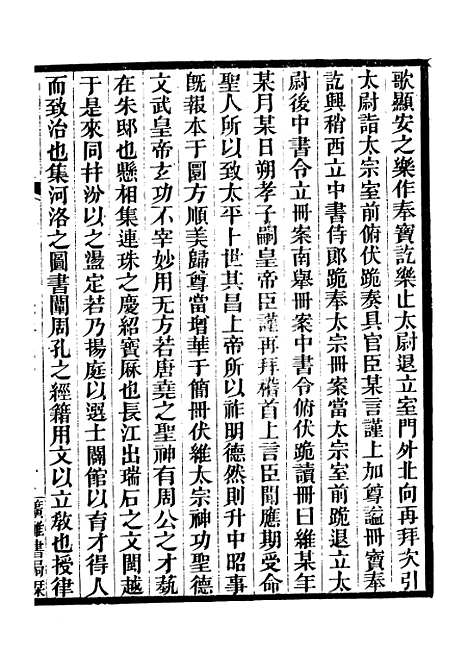 歌顯安之樂作奉寶訖樂止太尉退立室門外北向再拜次引
太尉詣太宗室前俯伏跪奏具官臣某言謹上加尊諡冊寶奉
訖興稍西立中書侍郎跪奉太宗冊案當太宗室前跪退立太
尉後中書令立冊案南舉冊案中書令俯伏跪讀冊曰維某年
某月某日朔孝子嗣皇帝臣謹再拜稽首上言臣聞應期受命
聖人所以致太平卜世其昌上帝所以祚明德然則升中昭事
旣報本于圜方順美歸尊當增華于簡冊伏維太宗神功聖德
文武皇帝玄功不宰妙用无方若唐堯之聖神有周公之才藝
在朱邸也懸相集連珠之慶紹寶厤也長江出瑞石之文閩越
于是來同幷汾以之盪定若乃揚庭以選士闢館以育才得人
而致治也集河洛之圖書闡周孔之經籍用文以立敎也授律
廣雅書局栞